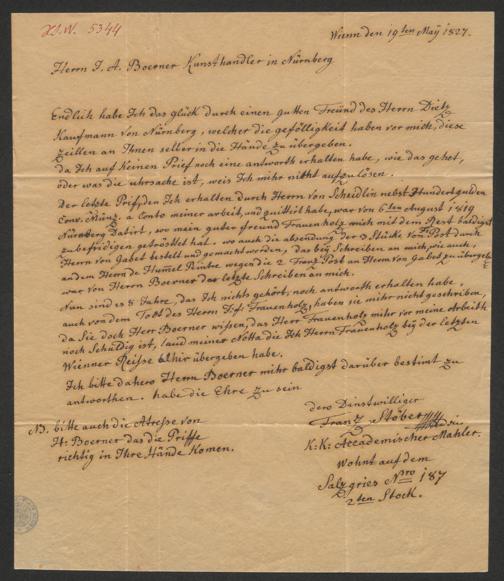 H.W. 5344
Wienn den 19ten Maÿ 1827.
Herrn J. A. Boerner Kunsthandler in Nürnberg
Endlich habe Ich das glück durch einen gutten Freünd des Herrn Dietz
Kaufmann von Nürnberg, welcher die gefölligkeit haben vor mich, diese
zeillen an Ihnen seller in die Hände zu übergeben.
da Ich auf Keinen Prief noch eine antworth erhalten habe, wie das gehet,
oder was die uhrsache ist, weis Ich mihr nicht aufzulösen.
Der letzte Prief, den Ich erhalten durch Herrn von Scheidlin nebst Hundert gulden
Conv. Münz. a Conto meiner arbeit, und quittiert habe, war von 6ten August 1819
Nürnberg Dabirt, wo mein guter freund Frauenholz mich mit dem Rest baldigst
zubefridigen getröstet hat. wo auch die absendung der 9 Stücke von Postdank
Herrn von Gabet bestelt und gemacht worden, das beÿ Schreiben an mich, wie auch,
an dem Herrn de Humel Peintre wegen die 2 Franz. Post an Herrn von Gabet zu übergeben
war von Herrn Boerner das letzte Schreiben an mich.
Nun sind es 8 Jahre, das Ich nichts gehört, noch antworth erhalten habe.
auch von dem Tott des Herrn J.f. Frauenholz, haben sie mihr nicht geschriben,
da Sie doch Herr Boerner wissen, das Herr Frauenholz mihr vor meine Arbeith
noch Schuldig ist, laud meiner Notta die Ich Herrn Frauenholz beÿ der letzten
Wienner Reisse hihr übergeben habe.
Ich bitte dahero Herrn Boerner mihr baldigst darüber bestimt zu
antworthen. habe die Ehre zu sein
dero Dinstwilliger
Franz Stöber
K: K: Accademischer Mahler.
wohnt auf dem
Salzgries Nro 187
2ten Stock.
NB. bitte auch die Atresse von
H: Boerner das die Priffe
richtig in Ihre Hände Komen.